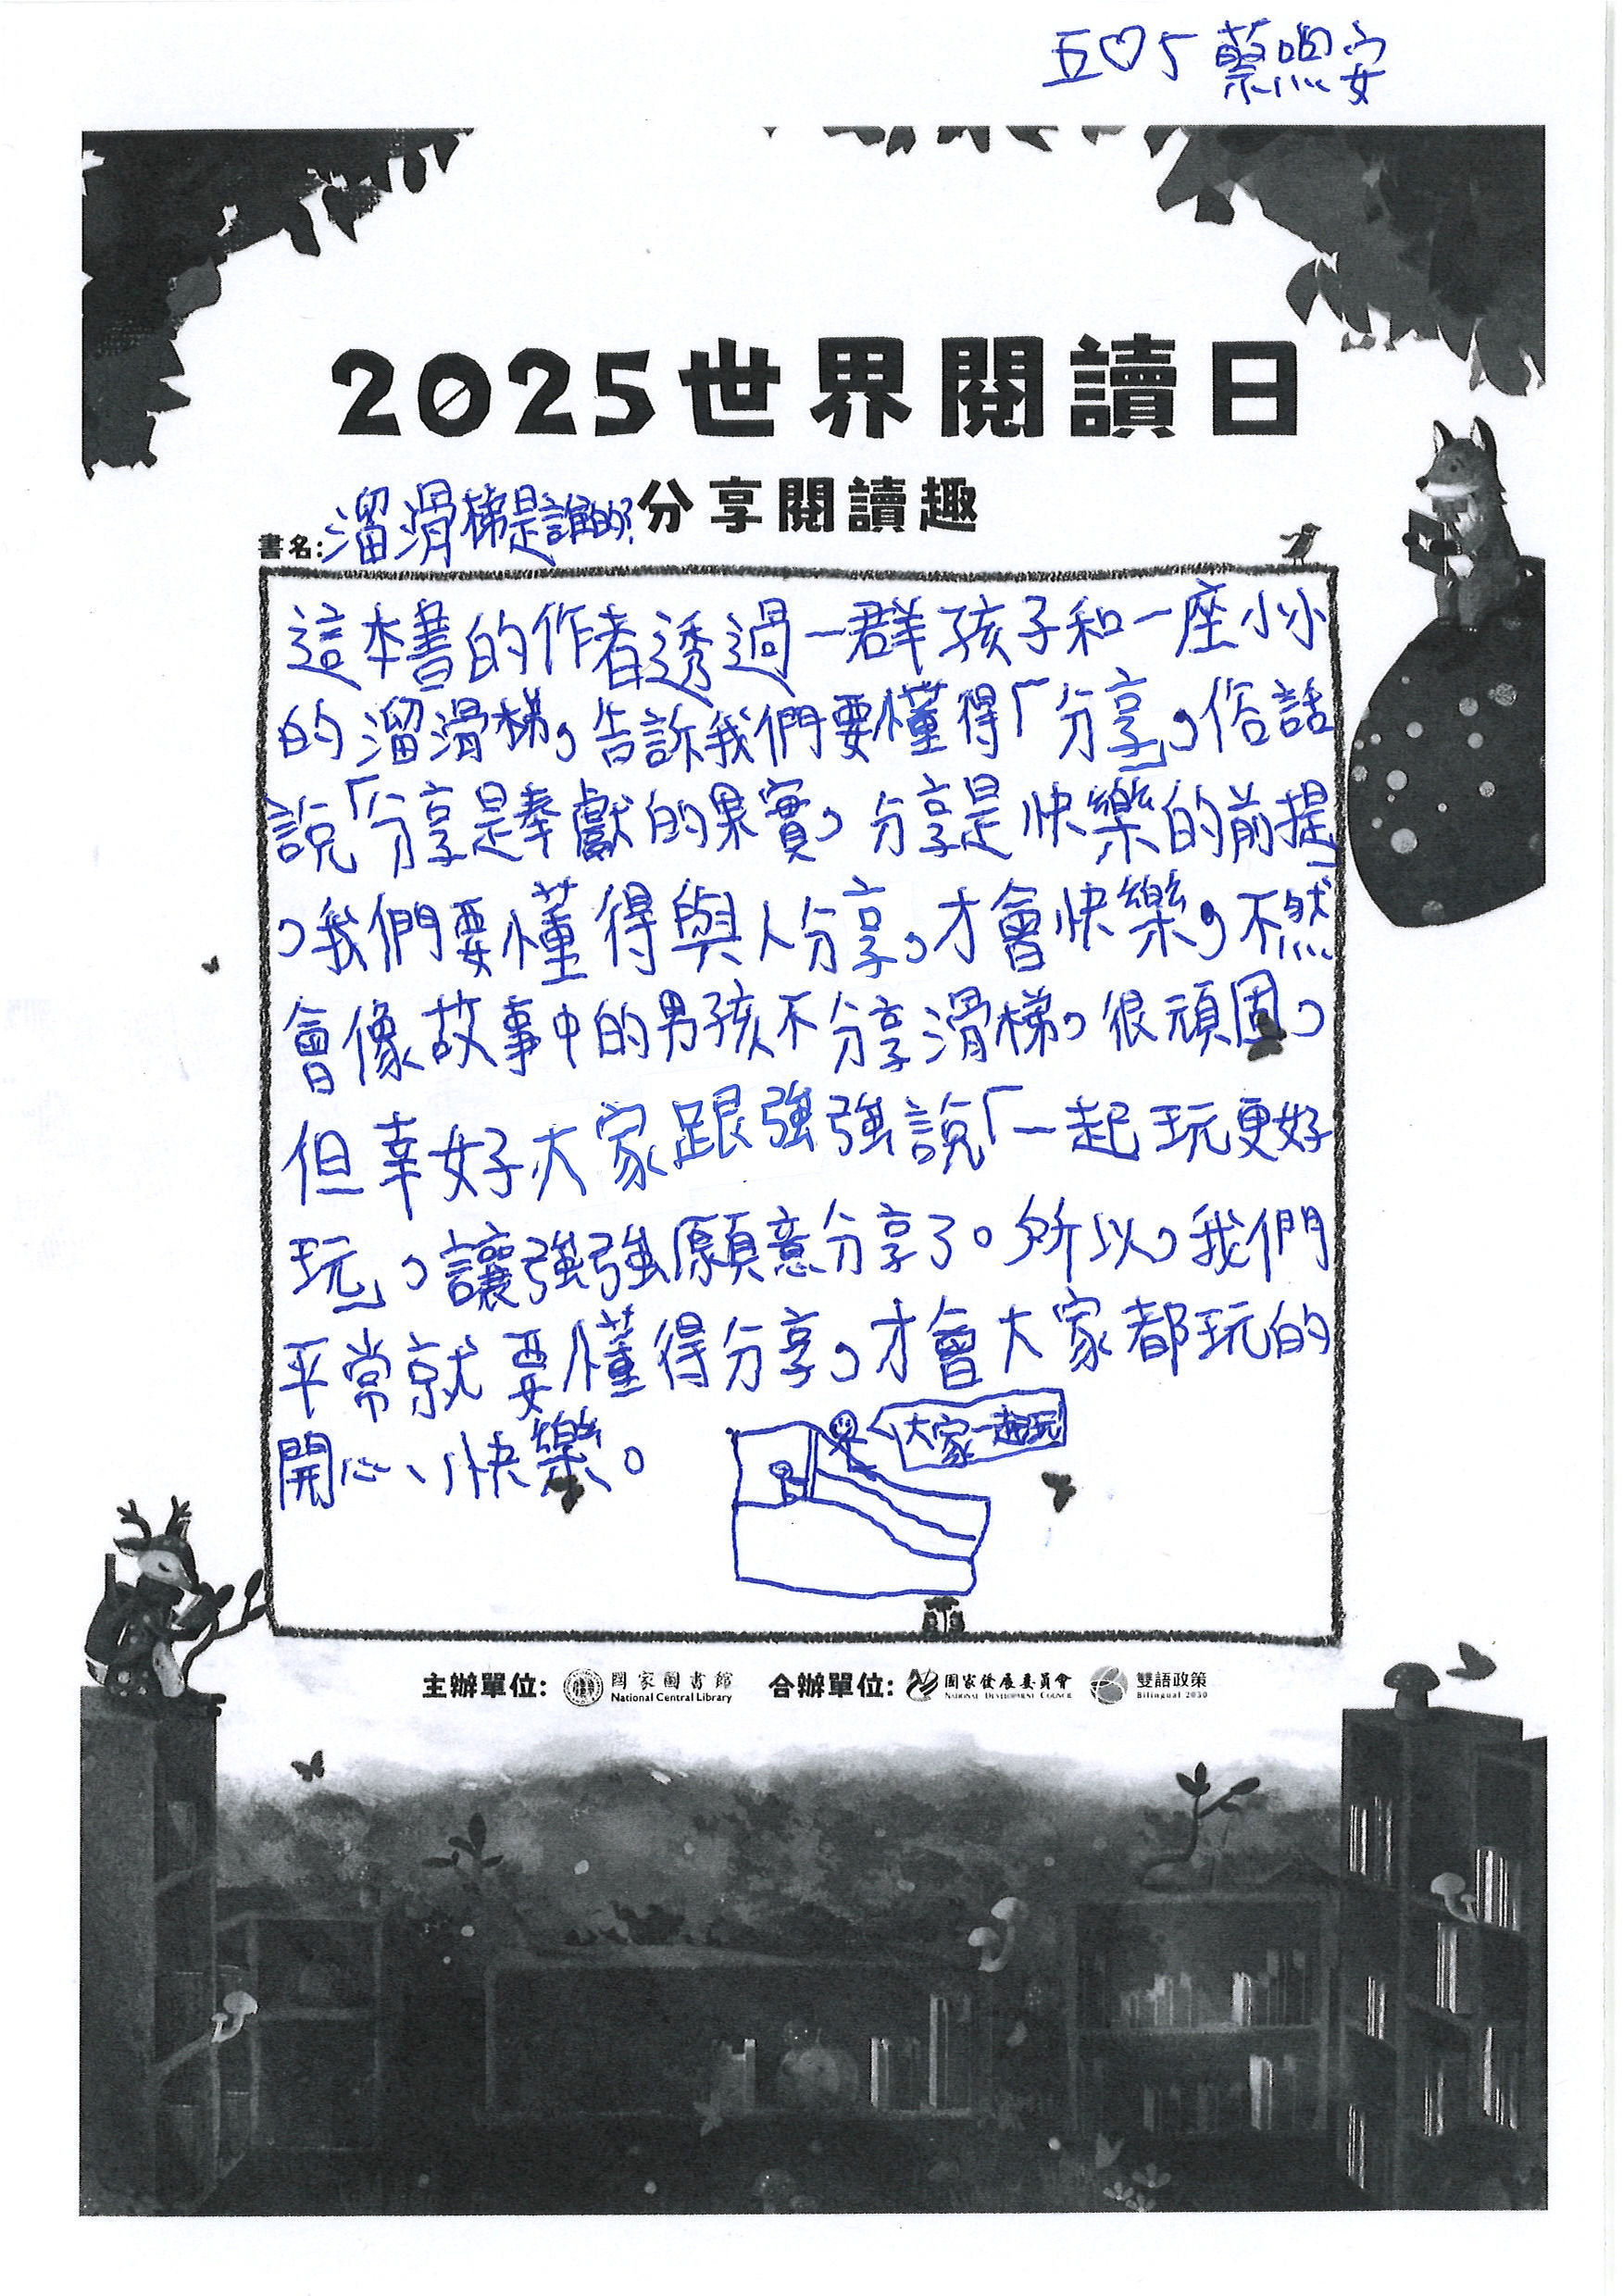 五♡5 蔡煦安
2025世界閱讀日
分享閱讀趣
書名:溜滑梯是誰的?
這本書的作者透過一群孩子和一座小小
的溜滑梯,告訴我們要懂得「分享」,俗話
說「分享是奉獻的果實,分享是快樂的前提」
,我們要懂得與人分享,才會快樂,不然
會像故事中的男孩不分享滑梯,很頑固,
但幸好大家跟強強說「一起玩更好
玩」,讓強強願意分享了。所以,我們
平常就要懂得分享,才會大家都玩的
開心、快樂。
大家一起玩
主辦單位: 國家圖書館 National Central Library 合辦單位: 國家發展委員會 NATIONAL DEVELOPMENT COUNCIL 雙語政策 Bilingual 2030